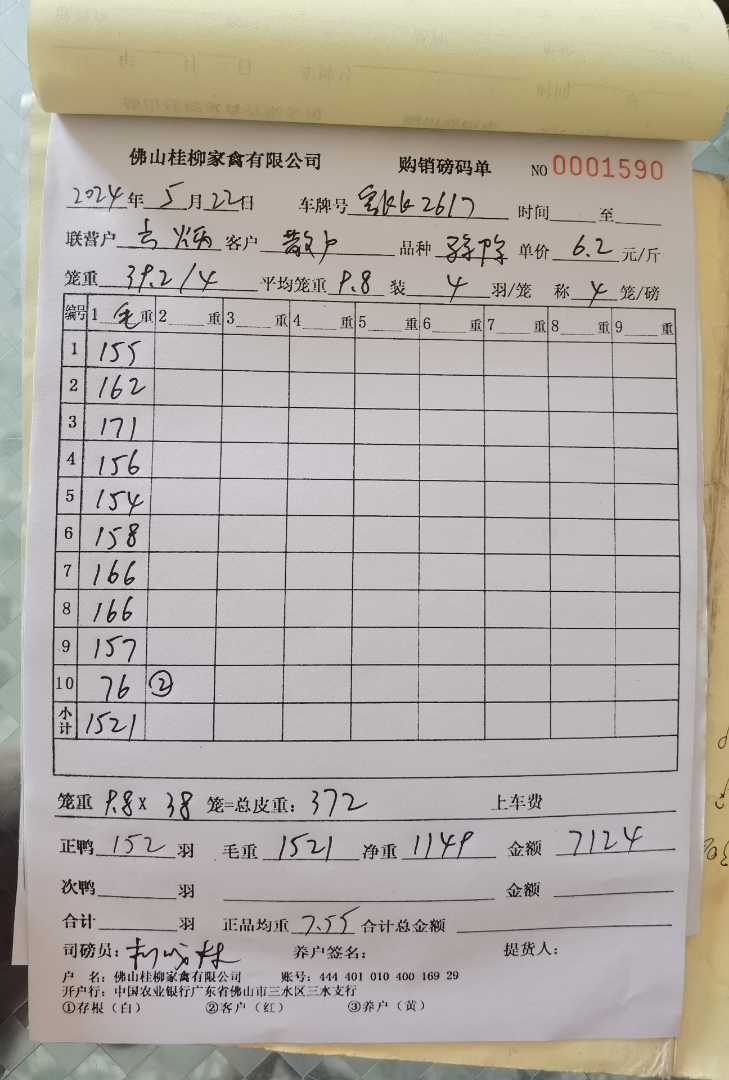 佛山桂柳家禽有限公司 购销磅码单 NO 0001590
2024年5月22日 车牌号 2617 时间 至
联营户 客户 散户 品种 单价 6.2 元/斤
笼重 39.2/4 平均笼重 9.8 装 4 羽/笼 称 4 笼/磅
编号 1 毛 重 2 重 3 重 4 重 5 重 6 重 7 重 8 重 9 重
1 155
2 162
3 171
4 156
5 154
6 158
7 166
8 166
9 157
10 76 ②
小计 1521
笼重 9.8× 38 笼=总皮重: 372 上车费
正鸭 152 羽 毛重 1521 净重 1149 金额 7124
次鸭 羽 金额
合计 羽 正品均重 7.55 合计总金额
司磅员: 养户签名: 提货人:
户 名: 佛山桂柳家禽有限公司 账号: 444 401 010 400 169 29
开户行: 中国农业银行广东省佛山市三水区三水支行
①存根（白） ②客户（红） ③养户（黄）